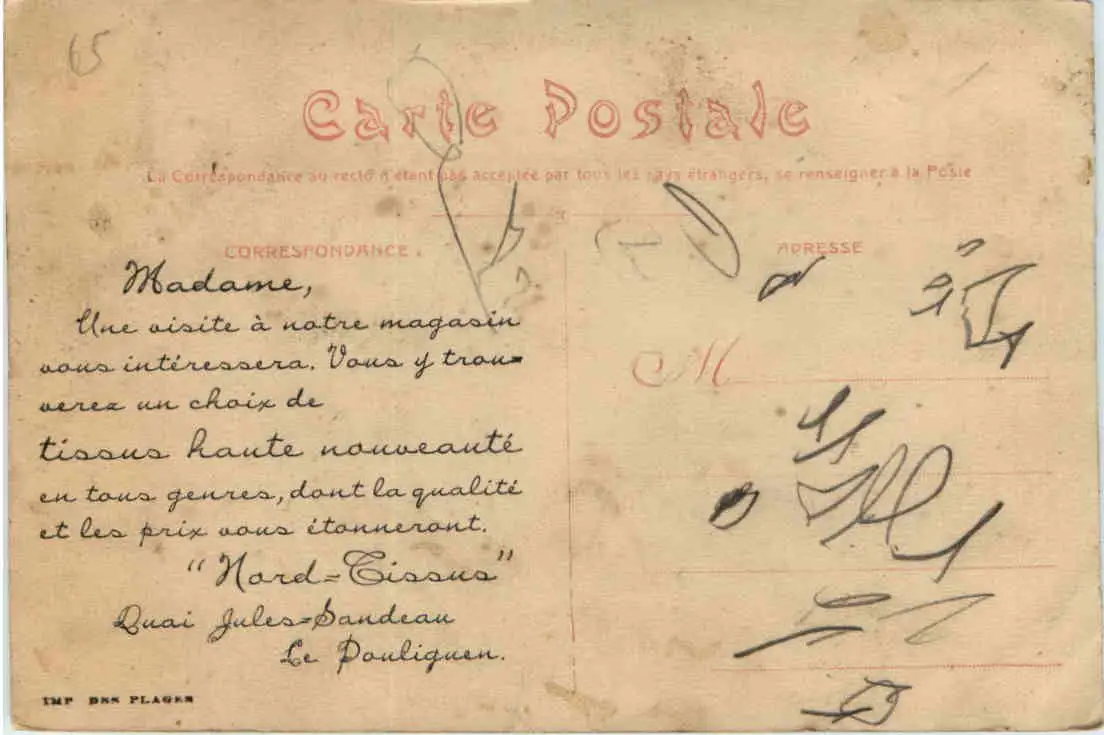 65
Carte Postale
La Correspondance au recto n'étant pas acceptée par tous les pays étrangers, se renseigner à la Poste
CORRESPONDANCE.
Madame,
Une visite à notre magasin
vous intéressera. Vous y trou=
verez un choix de
tissus haute nouveauté
en tous genres, dont la qualité
et les prix vous étonneront.
"Nord=Tissus"
Quai Jules=Sandeau
Le Pouliguen.
IMP DES PLAGES
ADRESSE
M